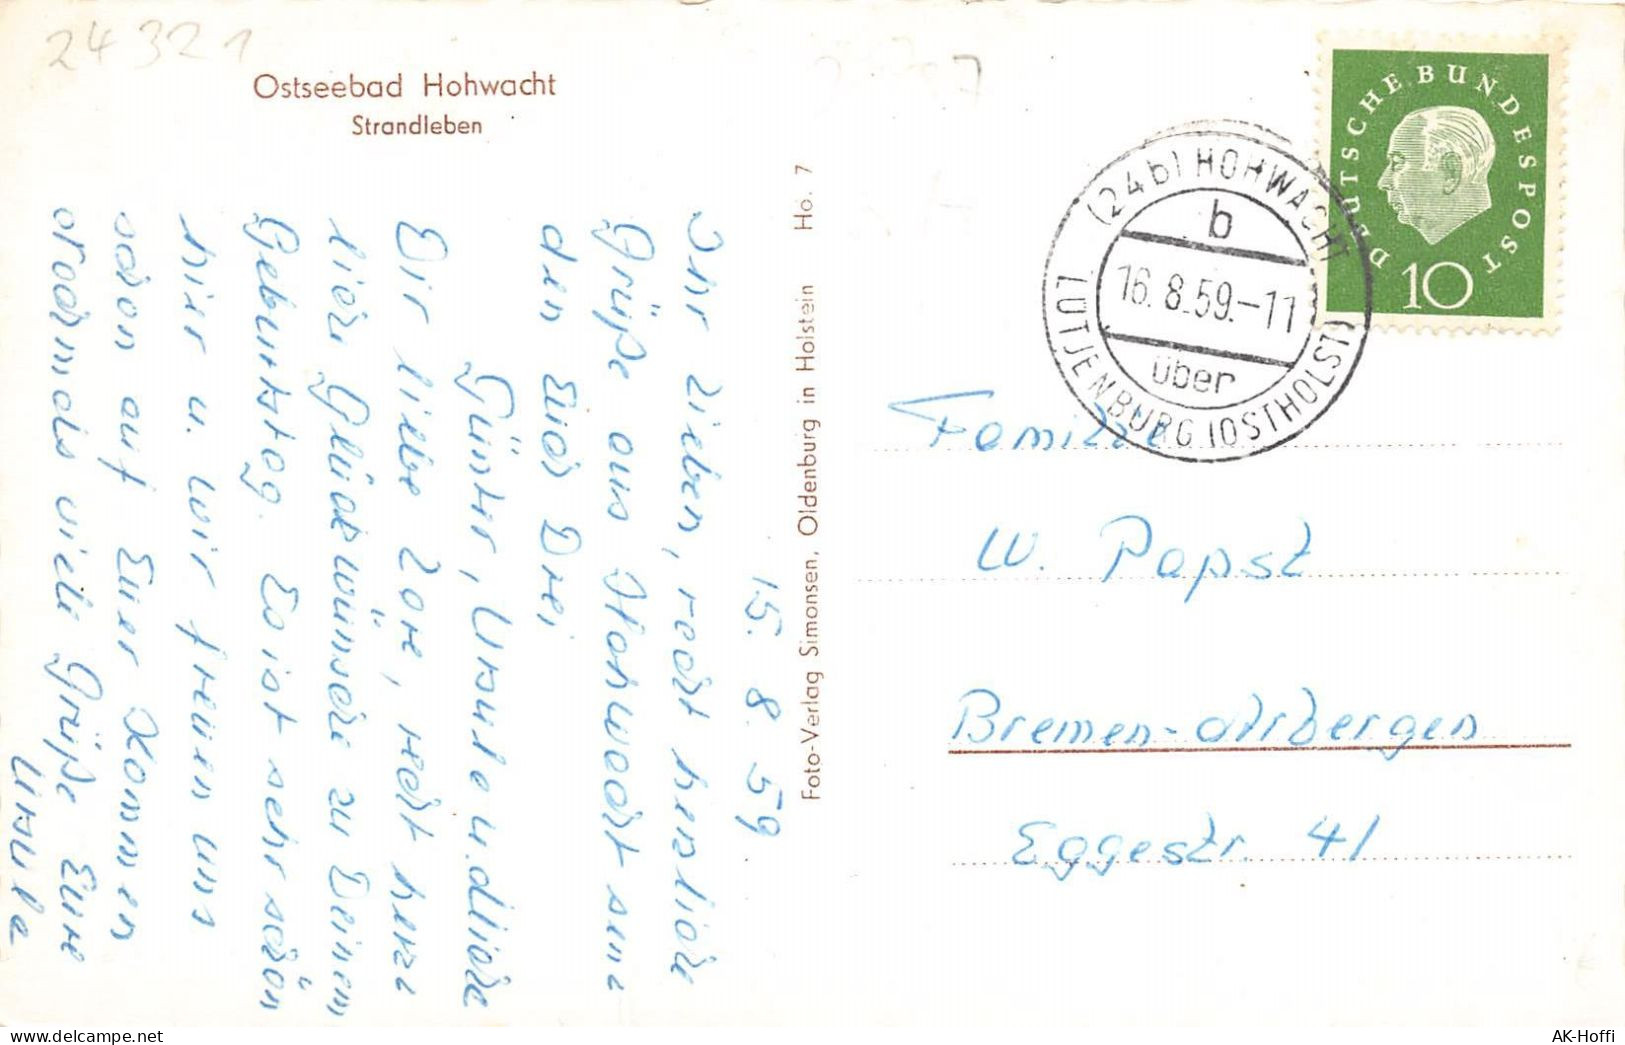 24321
Ostseebad Hohwacht
Strandleben
15. 8. 59
Ihr Lieben, recht herzliche
Grüße aus Hohwacht sen-
den Euch Drei
Günter, Ursula u.
Dir liebe Lore, recht herz-
liche Glückwünsche zu Deinem
Geburtstag. Es ist sehr schön
hier u. wir freuen uns
schon auf Euer Kommen
nochmals viele Grüße Eure
Ursula
Foto-Verlag Simonsen, Oldenburg in Holstein Ho. 7
DEUTSCHE BUNDESPOST
10
(24b) HOHWACHT
b
16. 8. 59.-11
über
LÜTJENBURG (OSTHOLST)
Familie
W. Papst
Bremen-Arbergen
Eggestr. 41
AK-Hoffi